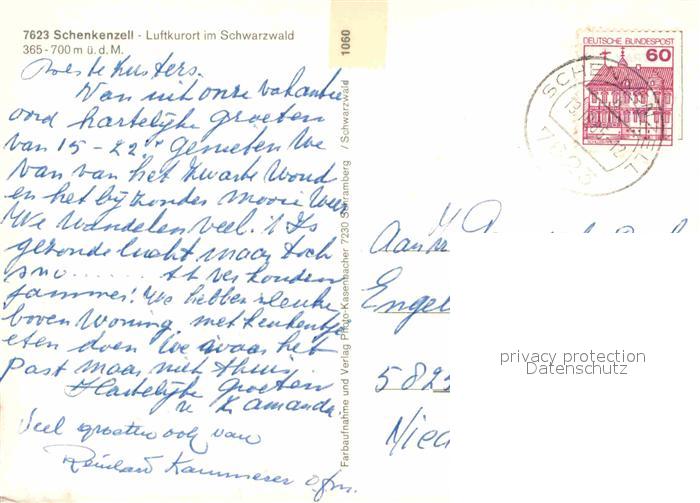 7623 Schenkenzell - Luftkurort im Schwarzwald
365-700 m ü. d. M.
1060
Beste Zusters.
Van uit onze vakantie
oord hartelijke groeten
van 15 - 22 genieten we
van van het Zwarte Woud
en het bijzonder mooie weer
We wandelen veel. 't Is
gezonde lucht maar toch
snu....... tt verkouden
jammer! We hebben n leuke
boven woning, met keukentje
eten doen we waar het
past maar niet thuis.
Hartelijke groeten
Zr Amanda.
Veel groeten ook van
Reinhard Kammerer ofm.
Farbaufnahme und Verlag Photo-Kasenbacher 7230 Schramberg / Schwarzwald
DEUTSCHE BUNDESPOST
60
SCHENKENZELL
7623
Aan
Engel
5825
Nied
privacy protection
Datenschutz